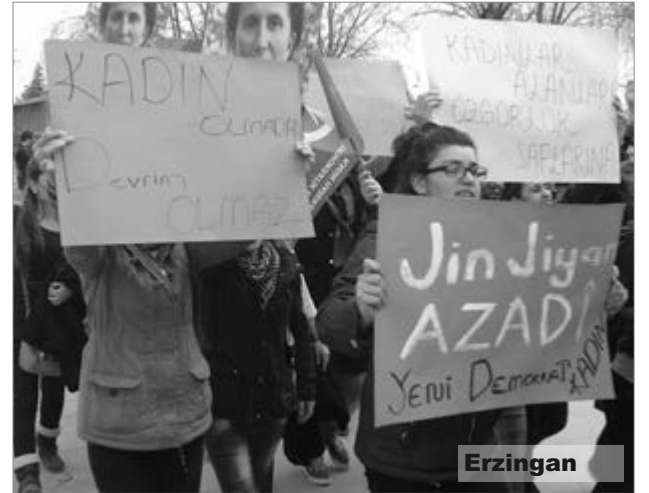 KADIN
OLMADAN
Devrim
OLMAZ
KADINLAR
ALANLARA
ÖZGÜRLÜK
SAFLARINA
Jin Jiyan
AZADÎ
YENİ DEMOKRAT KADIN
Erzingan